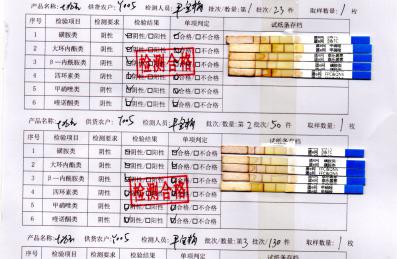 产品名称: 供货农户:Y005 检测人员: 批次/数量:第1批次/25件 取样数量:1枚
序号 检验项目 检测要求 检验结果 单项判定 试纸条存档
1 磺胺类 阴性 ☑阴性/□阳性 ☑合格/□不合格
2 大环内酯类 阴性 ☑阴性/□阳性 ☑合格/□不合格
3 β一内酰胺类 阴性 ☑阴性/□阳性 ☑合格/□不合格
4 四环素类 阴性 ☑阴性/□阳性 ☑合格/□不合格
5 甲硝唑类 阴性 ☑阴性/□阳性 ☑合格/□不合格
6 喹诺酮类 阴性 ☑阴性/□阳性 ☑合格/□不合格
检测合格
产品名称: 供货农户:Y005 检测人员: 批次/数量:第2批次/50件 取样数量:1枚
序号 检验项目 检测要求 检验结果 单项判定 试纸条存档
1 磺胺类 阴性 ☑阴性/□阳性 ☑合格/□不合格
2 大环内酯类 阴性 ☑阴性/□阳性 ☑合格/□不合格
3 β一内酰胺类 阴性 ☑阴性/□阳性 ☑合格/□不合格
4 四环素类 阴性 ☑阴性/□阳性 ☑合格/□不合格
5 甲硝唑类 阴性 ☑阴性/□阳性 ☑合格/□不合格
6 喹诺酮类 阴性 ☑阴性/□阳性 ☑合格/□不合格
检测合格
产品名称: 供货农户:Y005 检测人员: 批次/数量:第3批次/130件 取样数量:1枚
序号 检验项目 检测要求 检验结果 单项判定 试纸条存档